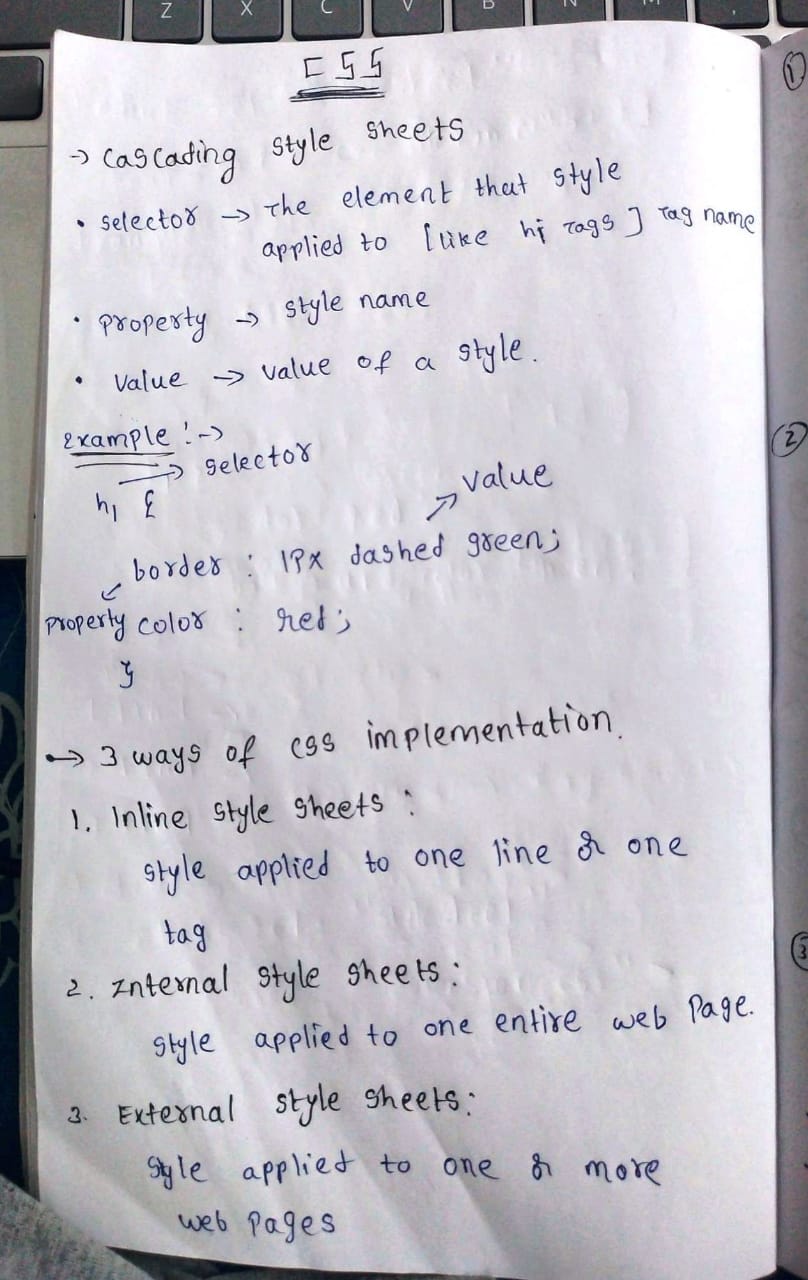 Z X C V B N M ,
CSS
→ Cascading style sheets
• selector → The element that style
applied to [like h1 Tags] Tag name
• property → style name
• value → value of a style.
Example :→
→ selector
h1 {
value
border : 1px dashed green;
property color : red;
}
→ 3 ways of css implementation.
1. Inline style sheets :
style applied to one line or one
tag
2. Internal style sheets :
style applied to one entire web page.
3. External style sheets :
style applied to one or more
web pages
1
2
3